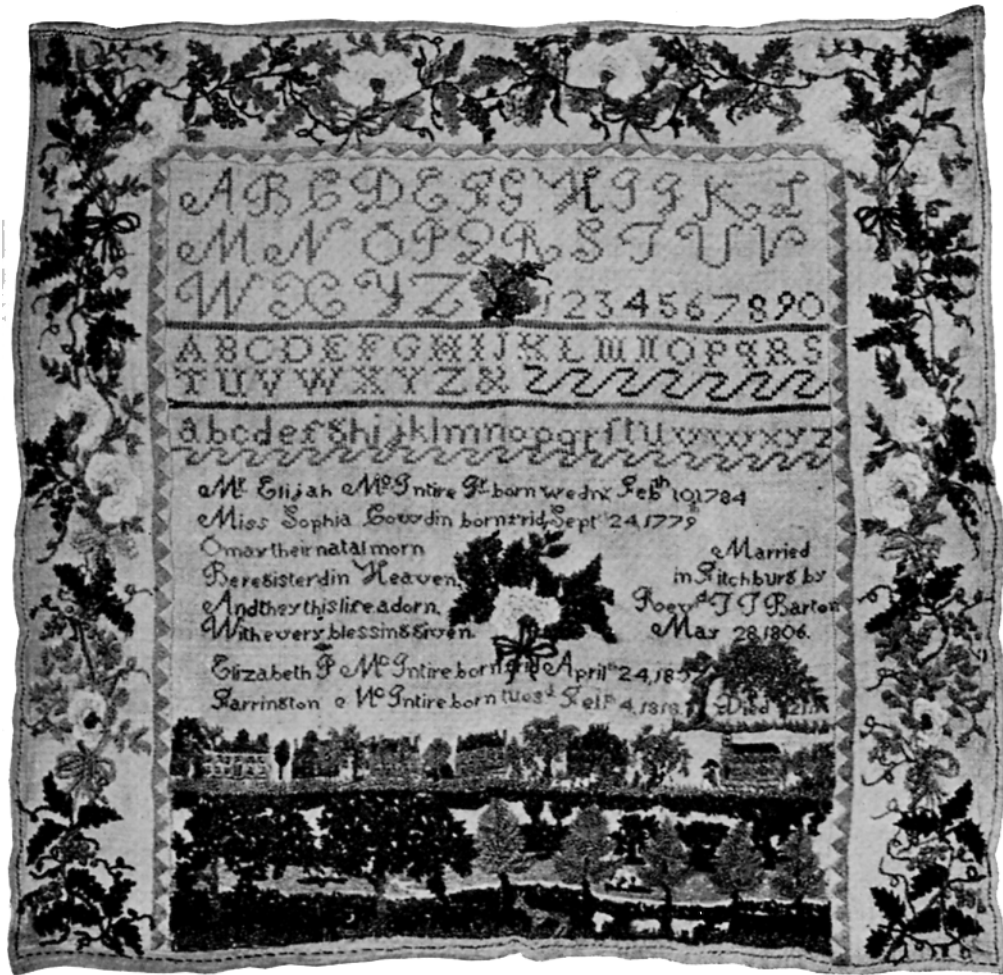 A B C D E F G H I J K L
M N O P Q R S T U V
W X Y Z 1 2 3 4 5 6 7 8 9 0
A B C D E F G H I J K L M N O P Q R S
T U V W X Y Z &
a b c d e f g h i j k l m n o p q r ſ t u v w x y z
Mr Elijah Mc Intire Jr born wedn Feb 10 1784
Miss Sophia Cowdin born frid Sept 24, 1779
O may their natal morn
Be registerd in Heaven,
And they this life adorn,
With every blessing given.
Married
in Fitchburg by
Revd T T Barton
May 28, 1806.
Elizabeth P Mc Intire born April 24,
Farrington Mc Intire born tuesd 4, 1818. Died